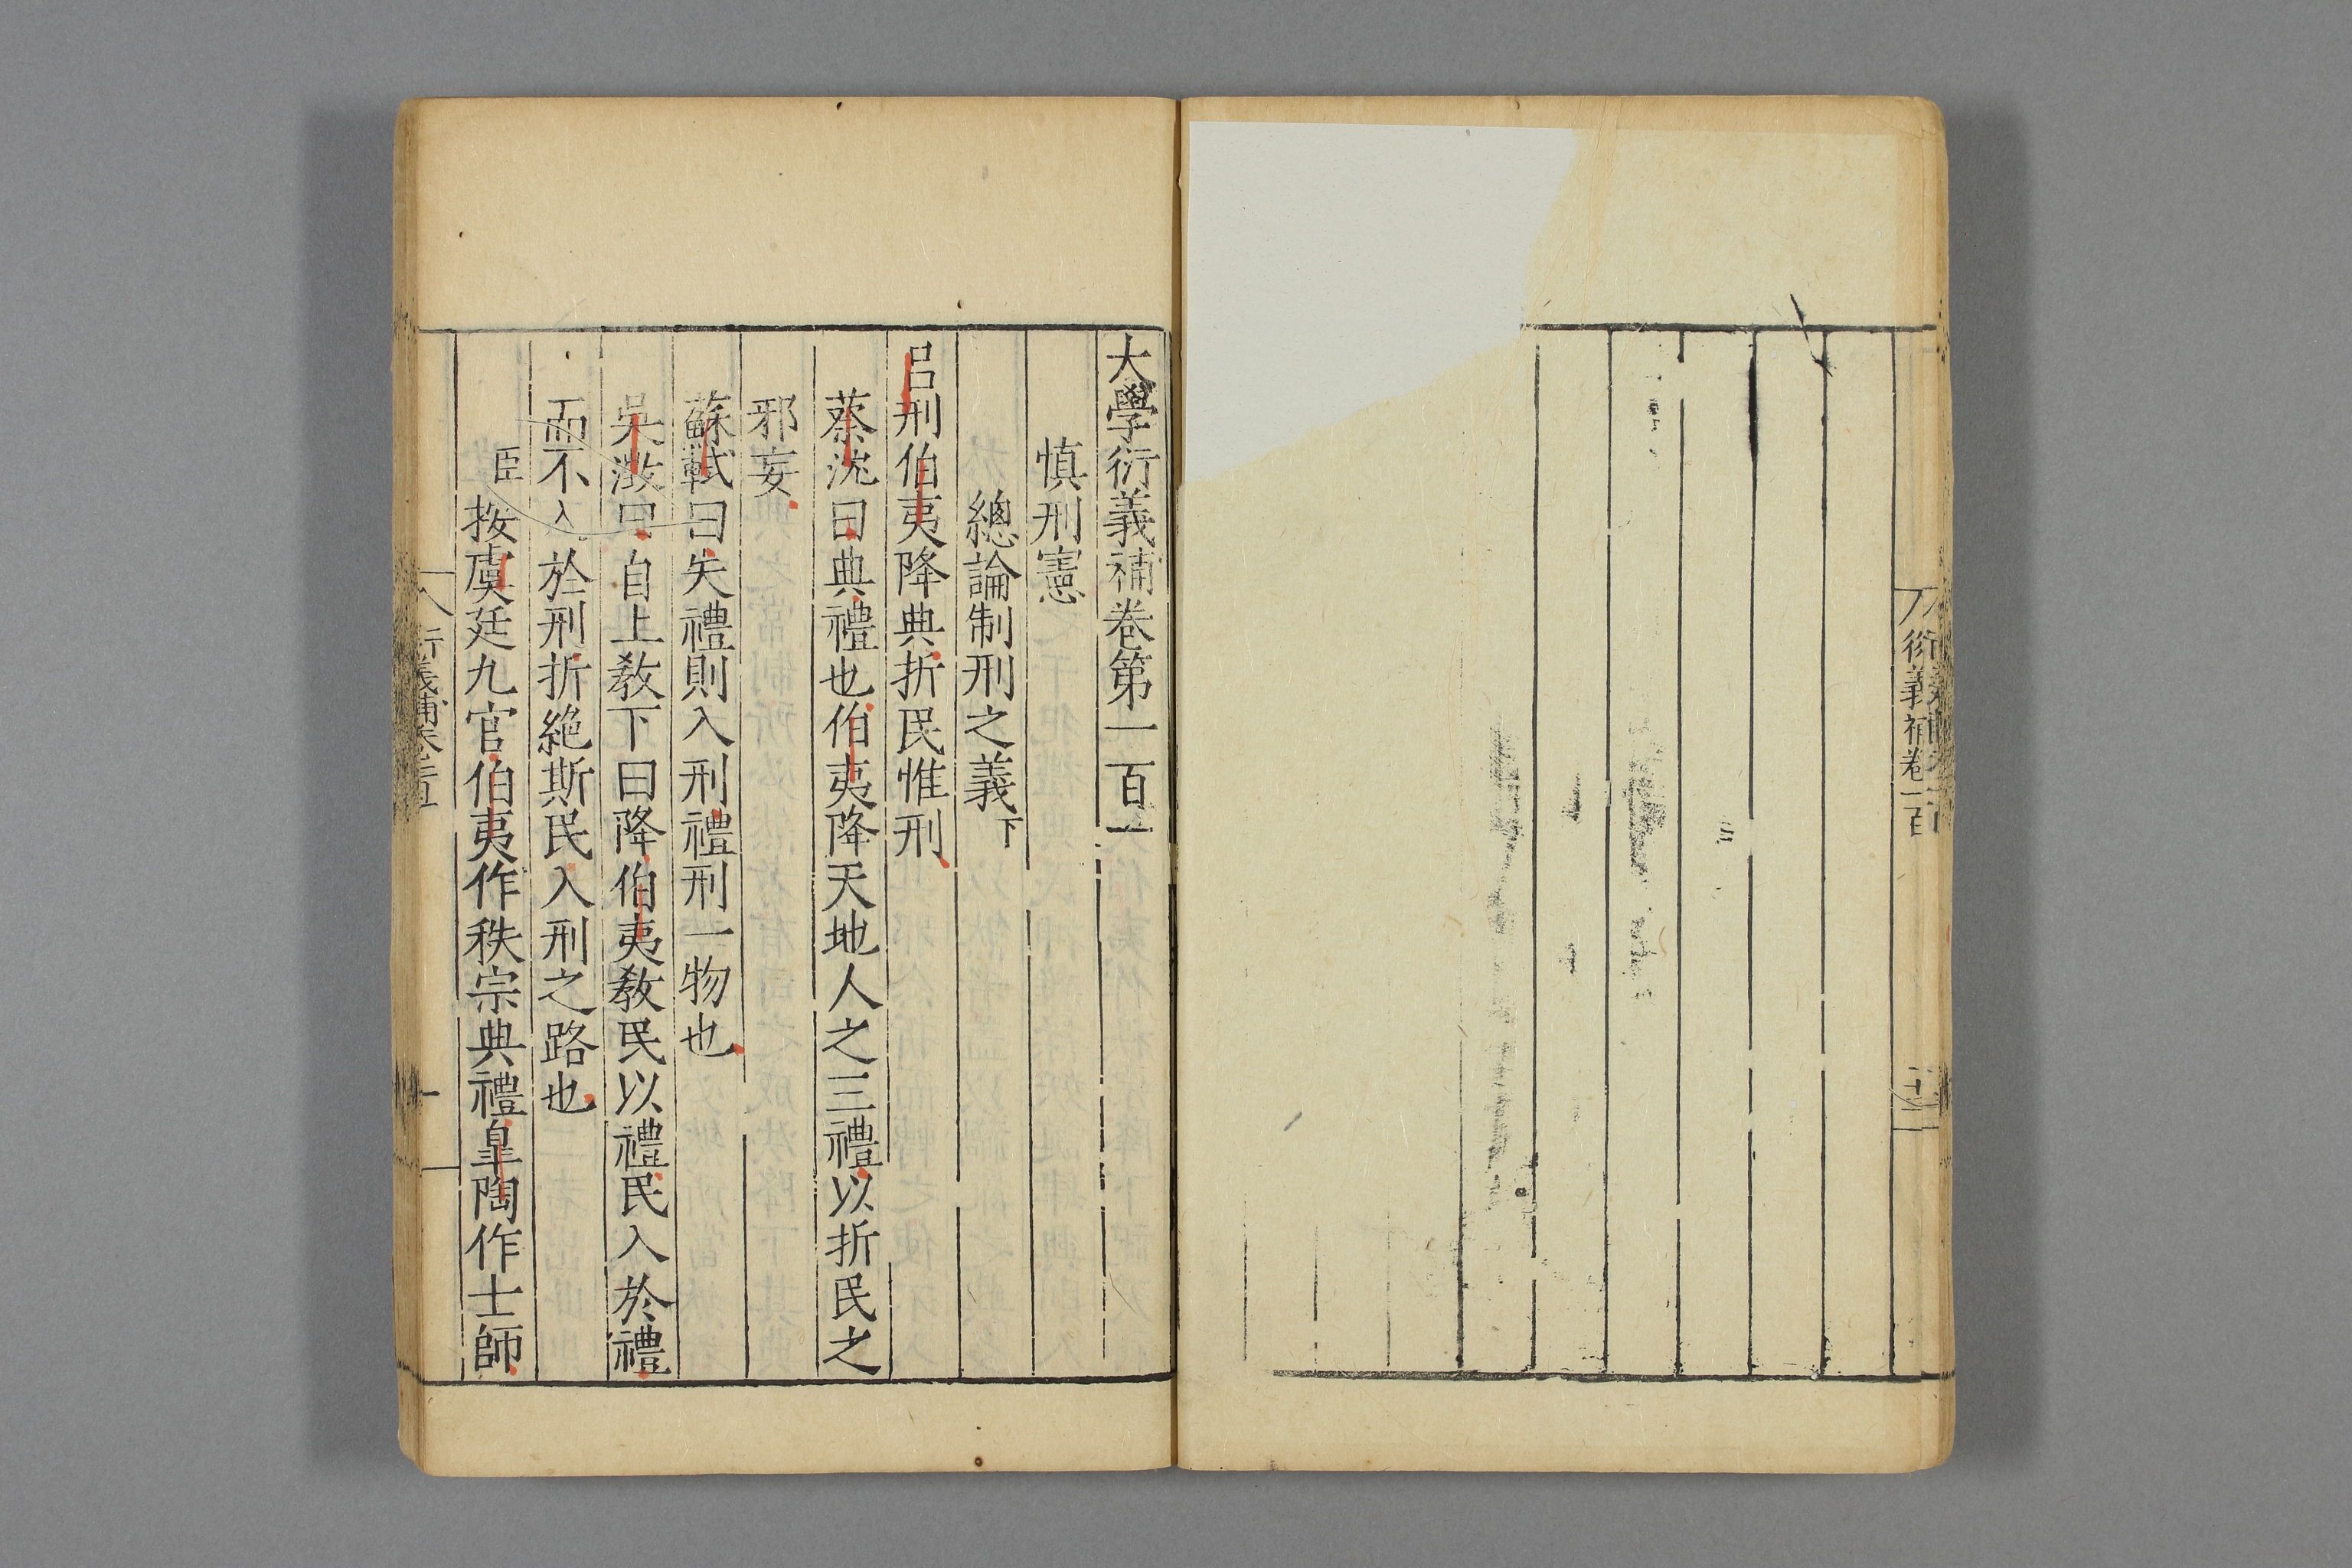 衍義補卷一百
大學衍義補卷第一百一
慎刑憲
總論制刑之義下
呂刑伯夷降典折民惟刑
蔡沈曰典禮也伯夷降天地人之三禮以折民之
邪妄
蘇軾曰失禮則入刑禮刑一物也
吳澂曰自上教下曰降伯夷教民以禮民入於禮
而不入於刑折絶斯民入刑之路也
臣按虞廷九官伯夷作秩宗典禮臯陶作士師